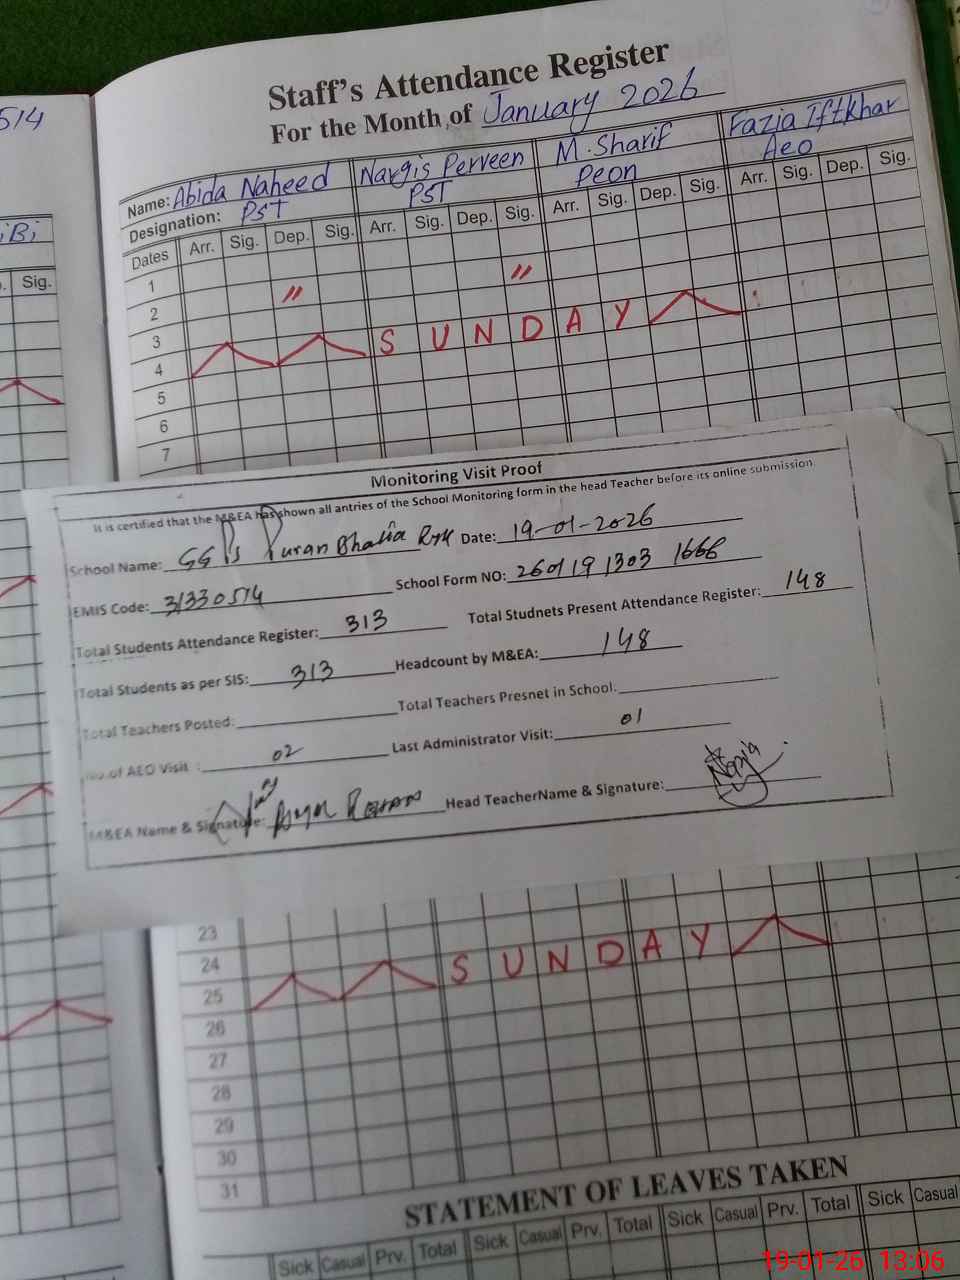 514
Staff's Attendance Register
For the Month of January 2026
Name: Abida Naheed Nargis Perveen M. Sharif Fazia Iftkhar
Designation: PST PST Peon Aeo
Dates Arr. Sig. Dep. Sig. Arr. Sig. Dep. Sig. Arr. Sig. Dep. Sig. Arr. Sig. Dep. Sig.
iBi
Sig.
1
2 〃 〃
3
4 SUNDAY
5
6
7
Monitoring Visit Proof
It is certified that the M&EA has shown all antries of the School Monitoring form in the head Teacher before its online submission
School Name: GGPS Puran Bhatia Ryk Date: 19-01-2026
EMIS Code: 31330514 School Form NO: 260119 1303 1666
Total Students Attendance Register: 313 Total Studnets Present Attendance Register: 148
Total Students as per SIS: 313 Headcount by M&EA: 148
Total Teachers Posted: Total Teachers Presnet in School:
No.of AEO Visit : 02 Last Administrator Visit: 01
M&EA Name & Signature: Head TeacherName & Signature: Nazia
23
24
25 SUNDAY
26
27
28
29
30
31
STATEMENT OF LEAVES TAKEN
Sick Casual Prv. Total Sick Casual Prv. Total Sick Casual Prv. Total Sick Casual
19-01-26 13:06